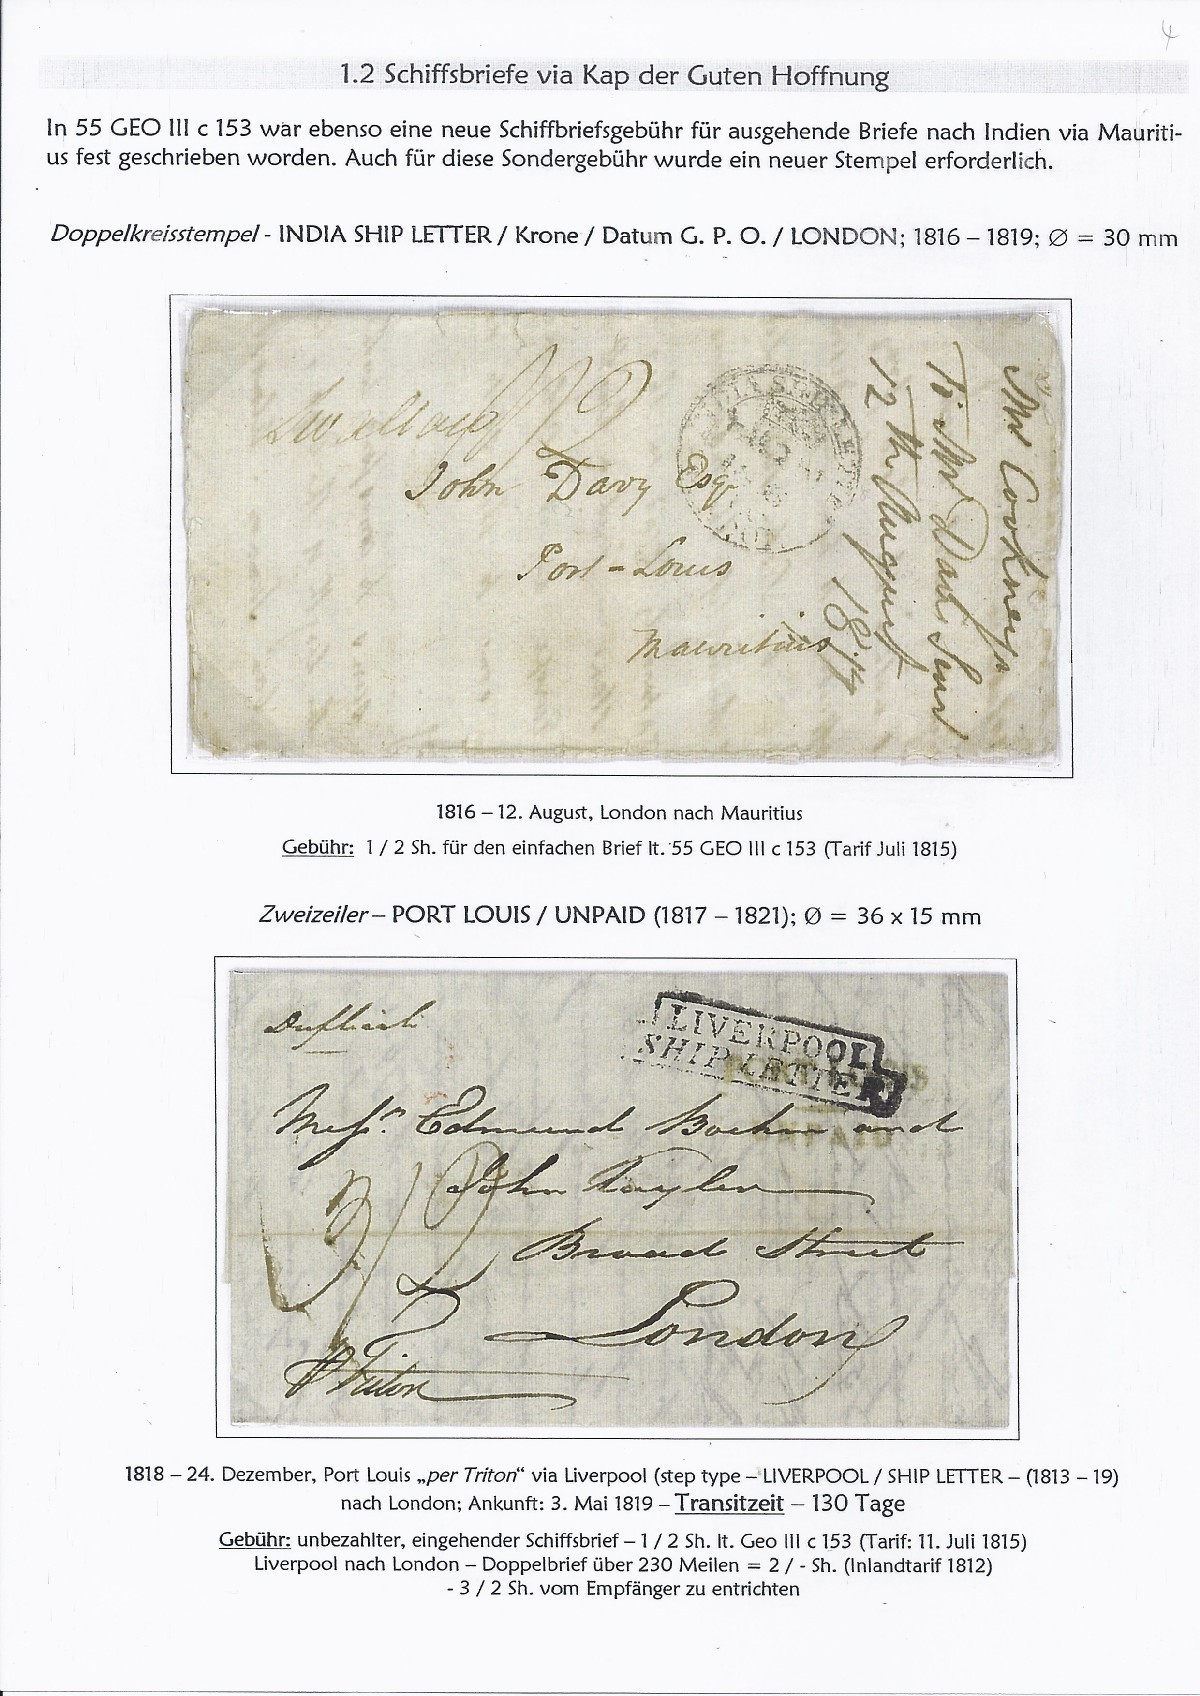 4
1.2 Schiffsbriefe via Kap der Guten Hoffnung
In 55 GEO III c 153 war ebenso eine neue Schiffbriefsgebühr für ausgehende Briefe nach Indien via Mauriti-
us fest geschrieben worden. Auch für diese Sondergebühr wurde ein neuer Stempel erforderlich.
Doppelkreisstempel - INDIA SHIP LETTER / Krone / Datum G. P. O. / LONDON; 1816 – 1819; Ø = 30 mm
1/2
John Davy Esqr
Port-Louis
Mauritius
Mr
To Mr
12th August
1816 – 12. August, London nach Mauritius
Gebühr: 1 / 2 Sh. für den einfachen Brief lt. 55 GEO III c 153 (Tarif Juli 1815)
Zweizeiler – PORT LOUIS / UNPAID (1817 – 1821); Ø = 36 x 15 mm
LIVERPOOL
SHIP LETTER
UNPAID
Messrs. Edmund Boehm and
John Tayler
Broad Street
London
3/2
Triton
1818 – 24. Dezember, Port Louis „per Triton“ via Liverpool (step type – LIVERPOOL / SHIP LETTER – (1813 – 19)
nach London; Ankunft: 3. Mai 1819 – Transitzeit – 130 Tage
Gebühr: unbezahlter, eingehender Schiffsbrief – 1 / 2 Sh. lt. Geo III c 153 (Tarif: 11. Juli 1815)
Liverpool nach London – Doppelbrief über 230 Meilen = 2 / - Sh. (Inlandtarif 1812)
- 3 / 2 Sh. vom Empfänger zu entrichten